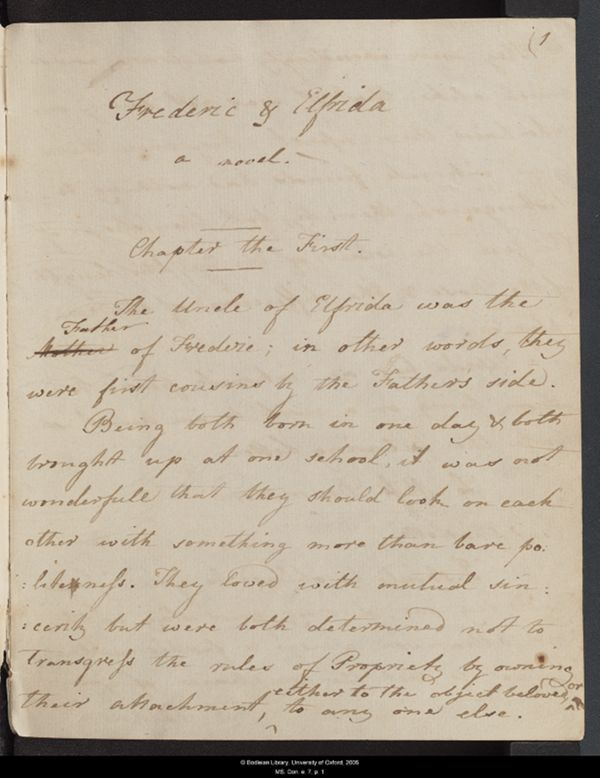 (1
Frederic & Elfrida
a novel.
Chapter the First.
The Uncle of Elfrida was the
Father
Mother of Frederic; in other words, they
were first cousins by the Father's side.
Being both born in one day & both
brought up at one school, it was not
wonderfull that they should look on each
other with something more than bare po:
:liteness. They loved with mutual sin:
:cerity but were both determined not to
transgress the rules of Propriety by owning
either to the object beloved, or
their attachment, ^ to any one else.
© Bodleian Library, University of Oxford, 2005
MS. Don. e. 7, p. 1